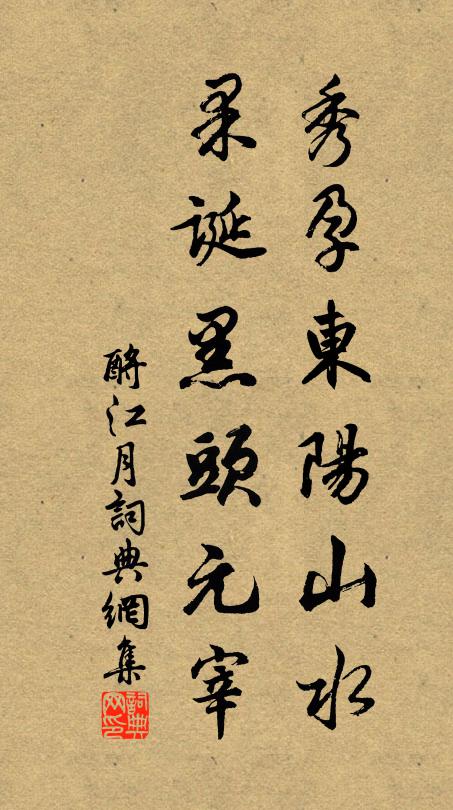 秀孕東陽山水
果誕黑頭元宰
酹江月詞典網集
詞典網印